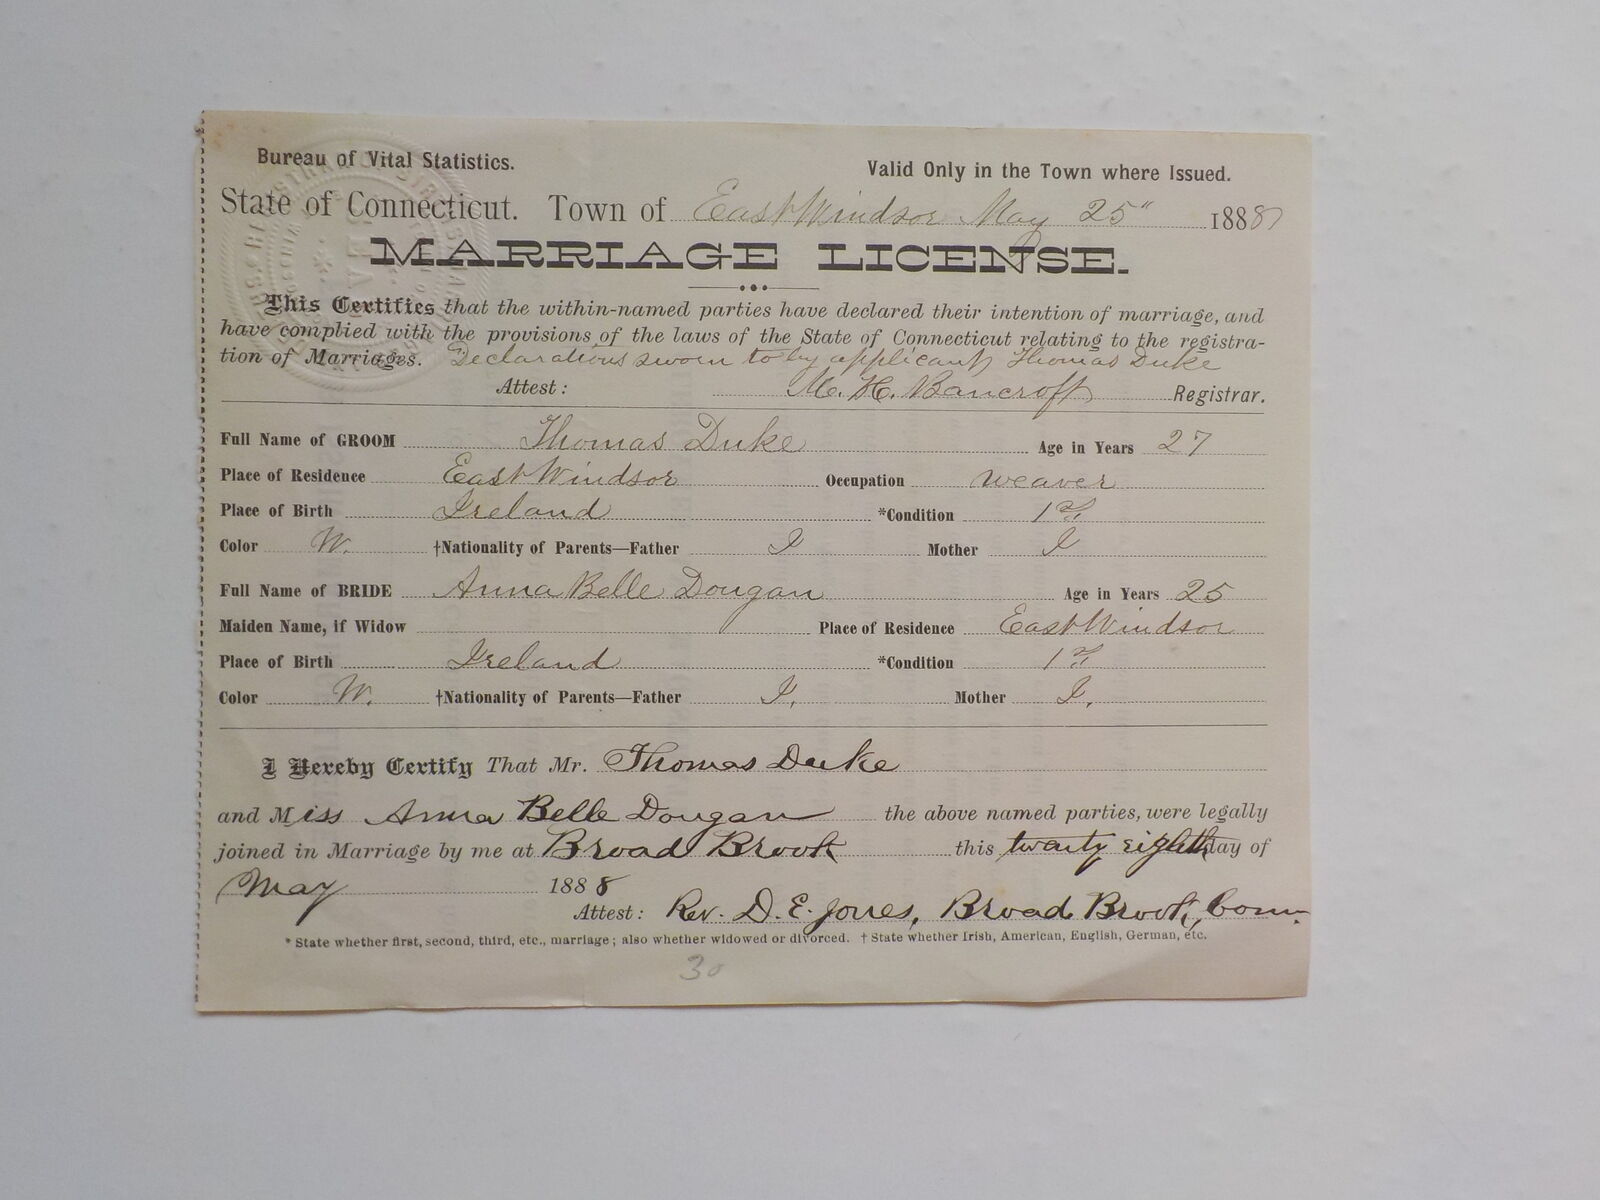 Bureau of Vital Statistics. Valid Only in the Town where Issued.
State of Connecticut. Town of East Windsor May 25" 1888
MARRIAGE LICENSE.
This Certifies that the within-named parties have declared their intention of marriage, and
have complied with the provisions of the laws of the State of Connecticut relating to the registra-
tion of Marriages. Declarations sworn to by applicant Thomas Duke
Attest: M. H. Bancroft Registrar.
Full Name of GROOM Thomas Duke Age in Years 27
Place of Residence East Windsor Occupation weaver
Place of Birth Ireland *Condition 1st
Color W. †Nationality of Parents—Father I Mother I
Full Name of BRIDE Anna Belle Dougan Age in Years 25
Maiden Name, if Widow Place of Residence East Windsor
Place of Birth Ireland *Condition 1st
Color W. †Nationality of Parents—Father I. Mother I.
I Hereby Certify That Mr. Thomas Duke
and Miss Anna Belle Dougan the above named parties, were legally
joined in Marriage by me at Broad Brook this twenty eighth day of
May 1888
Attest: Rev. D. E. Jones, Broad Brook, Conn.
* State whether first, second, third, etc., marriage; also whether widowed or divorced. † State whether Irish, American, English, German, etc.
30